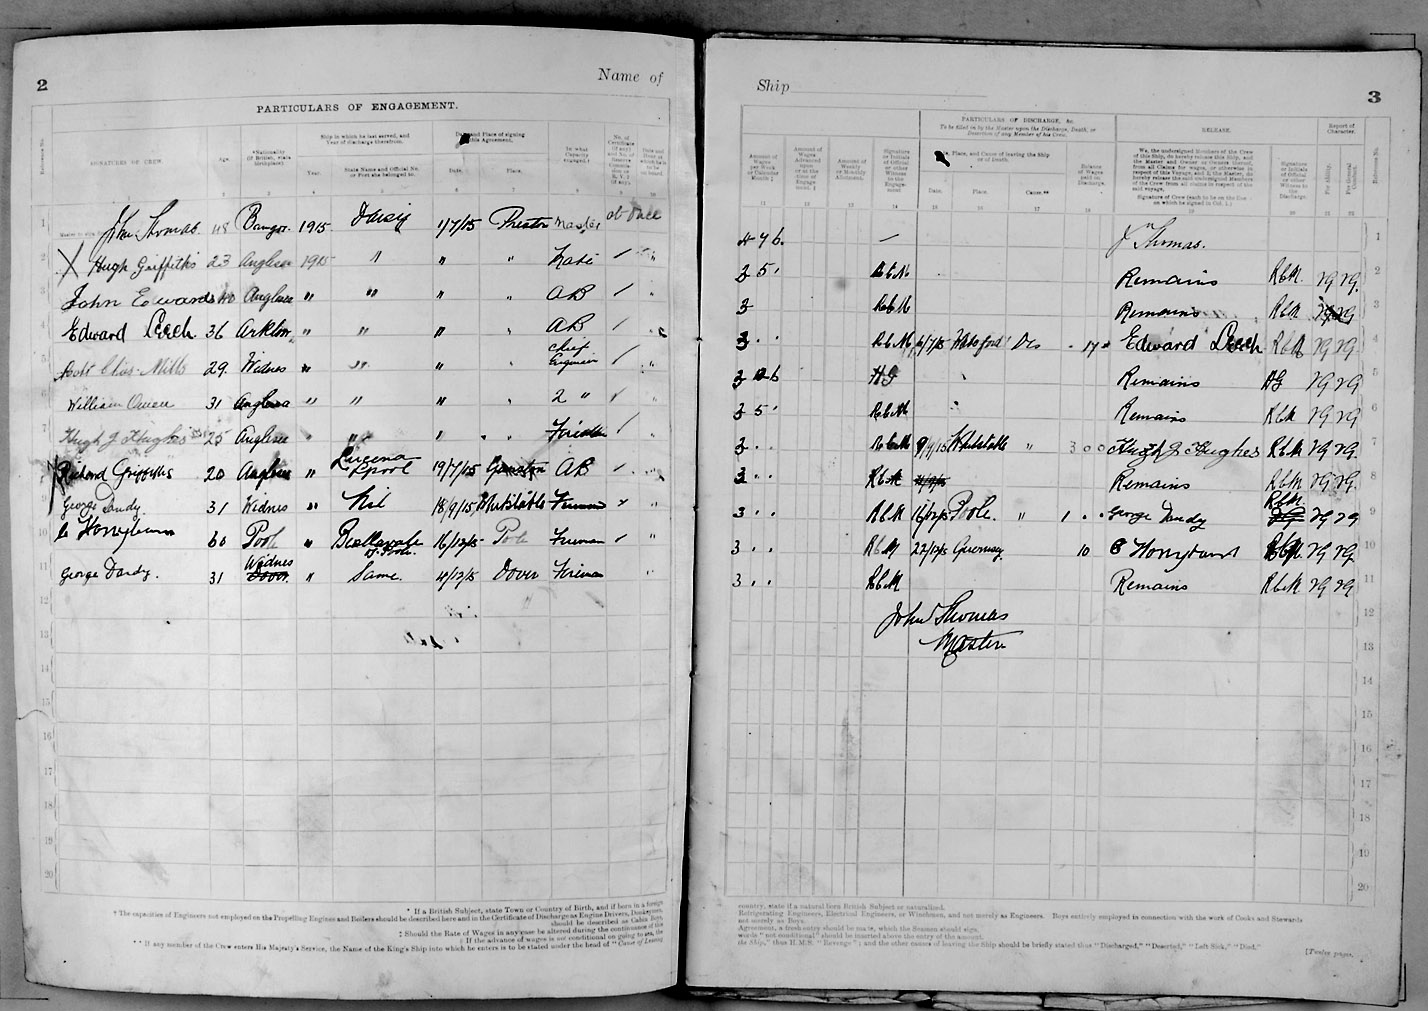 2
Name of
PARTICULARS OF ENGAGEMENT.
Reference No.
SIGNATURES OF CREW.
Age.
*Nationality (If British, state birthplace).
Ship in which he last served, and Year of discharge therefrom.
Year.
State Name and Official No. or Port she belonged to.
Date and Place of signing this Agreement.
Date.
Place.
In what Capacity engaged.†
1 2 3 4 5 6 7 8 9 10
1 John Thomas 48 Bangor 1915 Daisy 1/7/15 Preston Master at once
2 X Hugh Griffiths 23 Anglesea 1915 " " " Mate
3 John Edwards 40 Anglesea " " " " AB
4 Edward Leech 36 Arklow " " " " AB
5 Robt Chas. Mills 29 Widnes " " " Chief Engineer
6 William Owen 31 Anglesea " " " " 2 "
7 Hugh J Hughes 25 Anglesea " " " " Fireman
8 Richard Griffiths 20 Anglesea " Lucena Lpool 19/7/15 Garston AB
9 George Dandy. 31 Widnes " Nil 18/9/15 Whitstable Fireman
10 C Honeybun 60 Poole " of Poole. 16/12/15 Poole Fireman
11 George Dandy. 31 Widnes Dover " Same. 4/12/15 Dover Fireman
12
13
14
15
16
17
18
19
20
* If a British Subject, state Town or Country of Birth, and if born in a foreign
† The capacities of Engineers not employed on the Propelling Engines and Boilers should be described here and in the Certificate of Discharge as Engine Drivers, Donkeymen,
should be described as Cabin Boys,
‡ Should the Rate of Wages in any case be altered during the continuance of the
§ If the advance of wages is not conditional on going to sea, the
** If any member of the Crew enters His Majesty's Service, the Name of the King's Ship into which he enters is to be stated under the head of "Cause of Leaving
Ship
3
PARTICULARS OF DISCHARGE, &c.
To be filled in by the Master upon the Discharge, Death, or Desertion of any Member of his Crew.
RELEASE.
Report of Character.
Amount of Wages per Week or Calendar Month ‡
Amount of Wages Advanced upon or at the time of Engagement. §
Amount of Weekly or Monthly Allotment.
Signature or Initials of Official or other Witness to the Engagement
Date, Place, and Cause of leaving the Ship or of Death.
Date.
Place.
Cause.**
Balance of Wages paid on Discharge.
We, the undersigned Members of the Crew of this Ship, do hereby release this Ship, and the Master and Owner or Owners thereof, from all Claims for wages, or otherwise in respect of this Voyage, and I, the Master, do hereby release the undersigned Members of the Crew from all claims in respect of the said voyage.
Signature of Crew (each to be on the line on which he signed in Col. 1.)
Signature or Initials of Official or other Witness to the Discharge
For Ability.
For General Conduct.
Reference No.
11 12 13 14 15 16 17 18 19 20 21 22
4 7 6. — J Thomas. 1
2 5 RCM Remains RCM VG VG. 2
3 RCM Remains RCM VG VG 3
3 RCM Waterford Dis 17 Edward Leech RCM VG VG 4
HG Remains HG VG VG 5
2 5 RCM Remains RCM VG VG 6
3 RCM Whitstable " 3 0 0 Hugh J Hughes RCM VG VG. 7
3 RCM Remains RCM VG VG. 8
3 RCM 16/12/15 Poole. " 1 George Dandy RCM VG VG 9
3 RCM 22/12/15 Guernsey 10 C Honeybun RCM VG VG. 10
3 RCM Remains RCM VG VG. 11
John Thomas 12
Master 13
14
15
16
17
18
19
20
country, state if a natural born British Subject or naturalized.
Refrigerating Engineers, Electrical Engineers, or Winchmen, and not merely as Engineers. Boys entirely employed in connection with the work of Cooks and Stewards
not merely as Boys.
Agreement, a fresh entry should be made, which the Seaman should sign.
words "not conditional" should be inserted above the entry of the amount.
the Ship," thus H.M.S. "Revenge"; and the other causes of leaving the Ship should be briefly stated thus "Discharged," "Deserted," "Left Sick," "Died."
[Twelve pages.